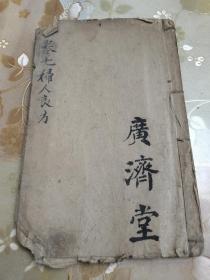 卷七婦人良方
廣濟堂